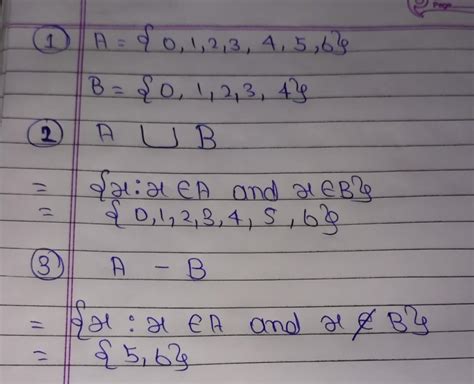 ① A = { 0, 1, 2, 3, 4, 5, 6}
B = {0, 1, 2, 3, 4}
② A ∪ B
= {x : x ∈ A and x ∈ B}
= { 0, 1, 2, 3, 4, 5, 6}
③ A - B
= {x : x ∈ A and x ∉ B}
= {5, 6}